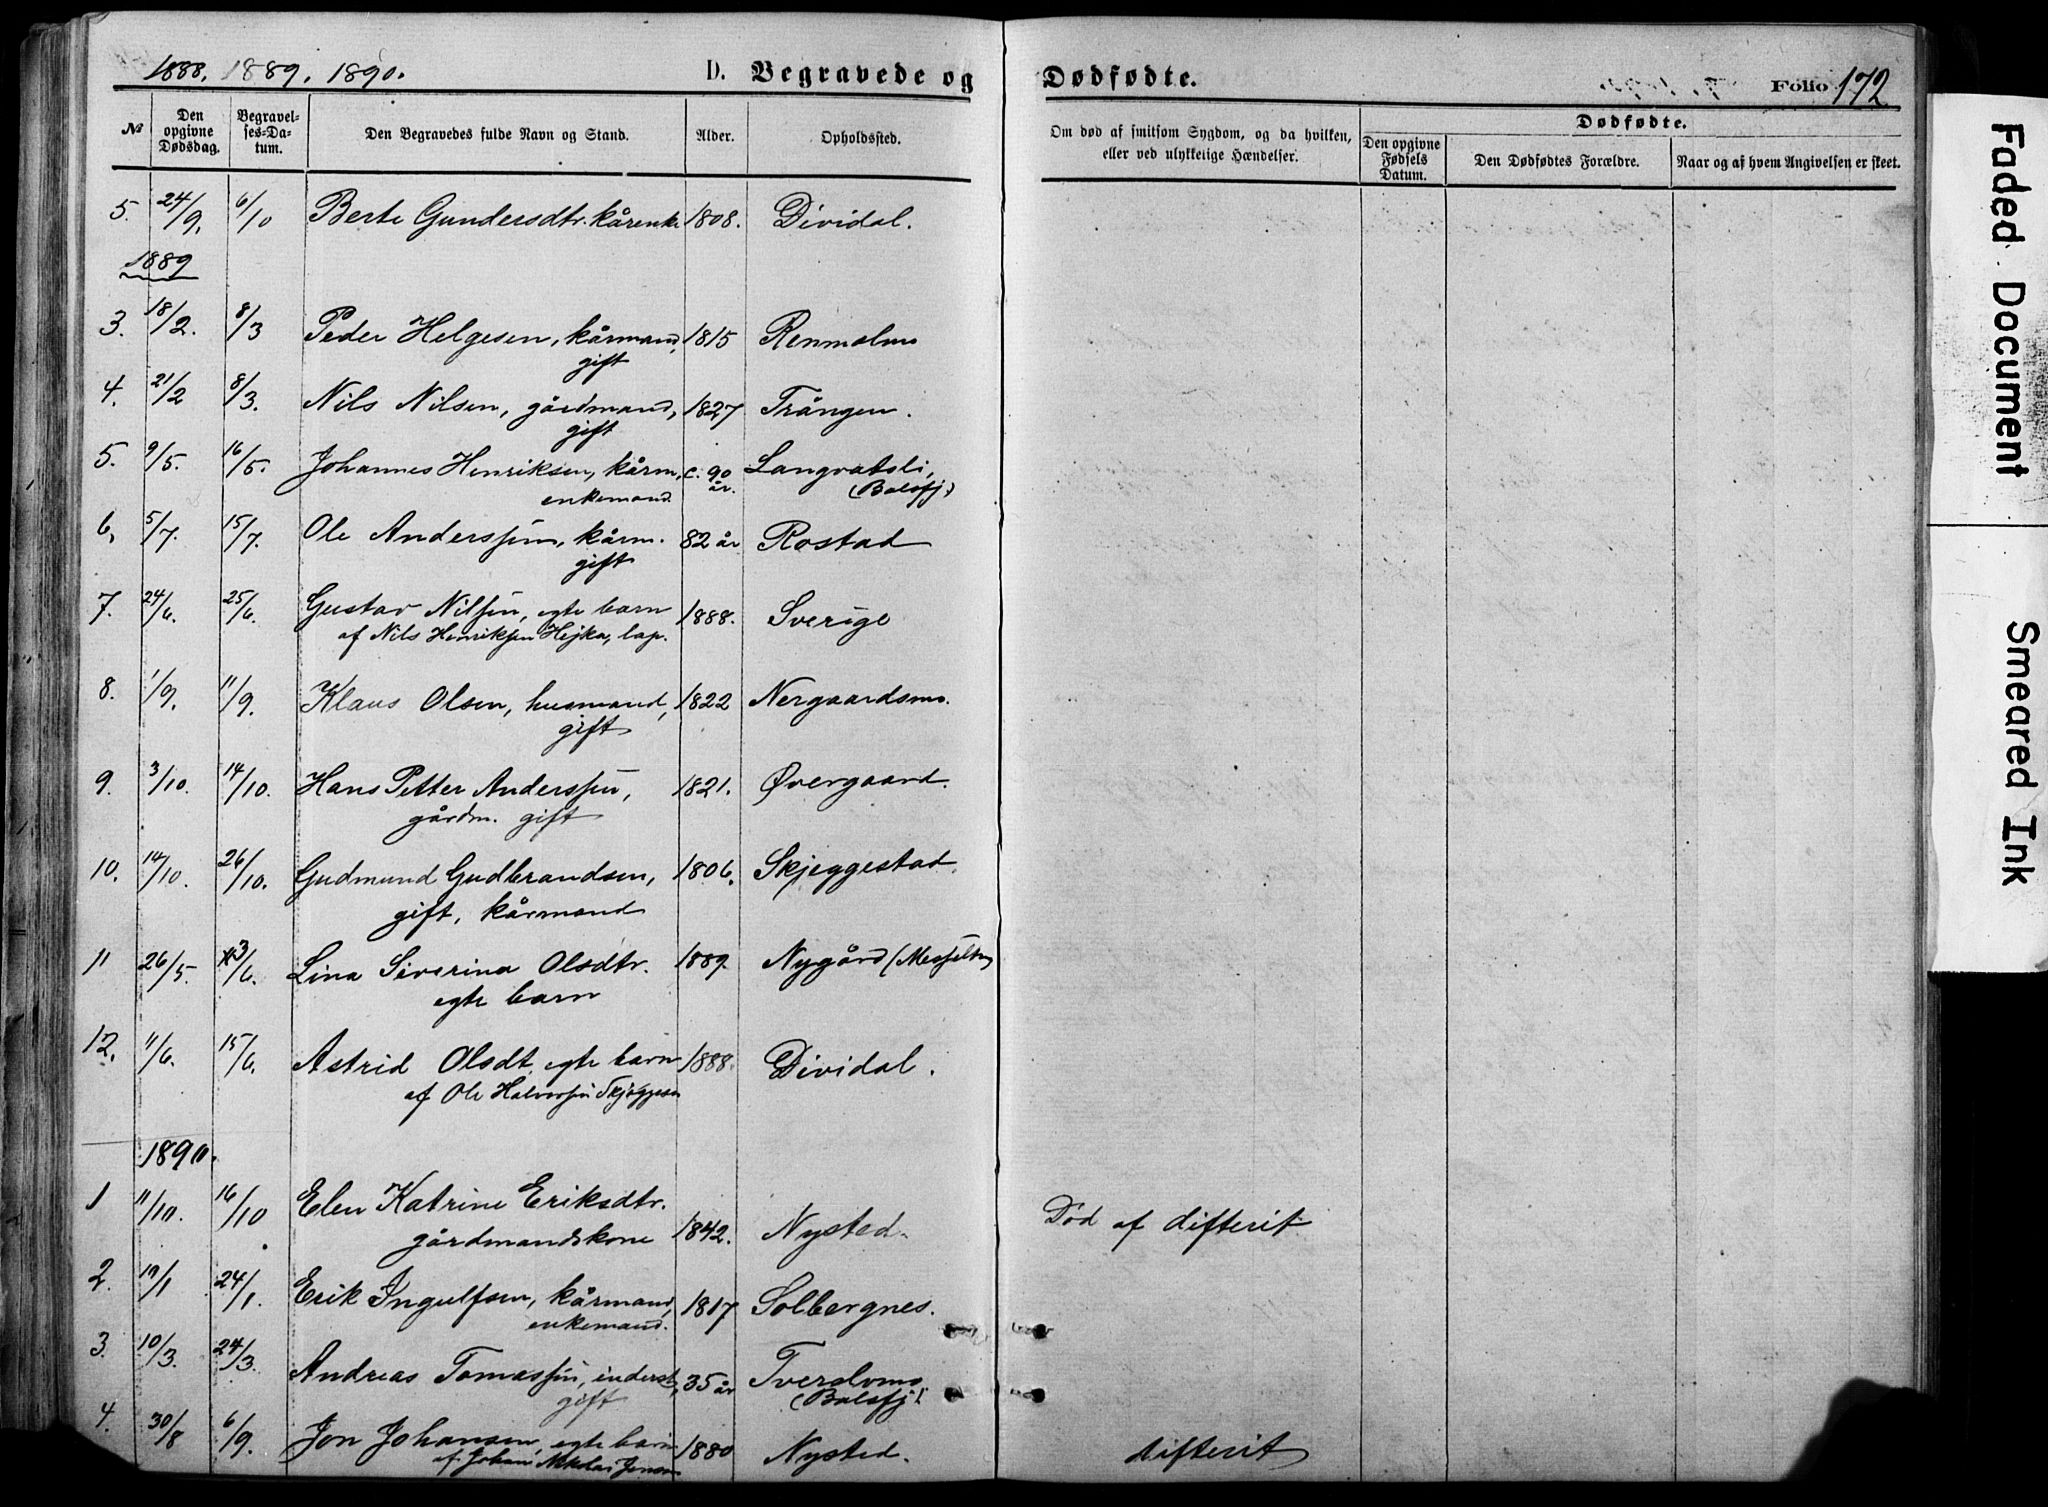 1888. 1889. 1890.
D. Begravede og
Dødfødte.
Folio 172
№
Den opgivne Dødsdag.
Begravel-ses-Da-tum.
Den Begravedes fulde Navn og Stand.
Alder.
Opholdssted.
Om død af smitsom Sygdom, og da hvilken, eller ved ulykkelige Hændelser.
Dødfødte.
Den opgivne Fødsels Datum.
Den Dødfødtes Forældre.
Naar og af hvem Angivelsen er skeet.
5. 24/9. 6/10 Berte Gundersdtr. kårenke 1808. Dividal.
1889
3. 18/2. 8/3 Peder Helgesen, kårmand, 1815 Renmolmo
gift
4. 21/2 8/3. Nils Nilsen, gårdmand, 1827 Trången.
gift
5. 9/5. 16/5. Johannes Henriksen, kårm. c. 90 år. Langvatsli,
enkemand (Balsfj.)
6. 5/7. 15/7. Ole Anderssen, kårm. 82 år Rostad
gift
7. 24/6. 25/6. Gustav Nilssen, egte barn 1888. Sverige
af Nils Henriksen Hejka, lap.
8. 1/9. 11/9. Klaus Olsen, husmand, 1822 Nergaardsmo.
gift
9. 3/10. 14/10. Hans Petter Anderssen, 1821. Øvergaard.
gårdm. gift
10. 14/10. 26/10. Gudmund Gudbrandsen, 1806. Skjeggestad.
gift, kårmand
11 26/5. 3/6. Lina Severina Olsdtr. 1889. Nygård
egte barn
12. 11/6. 15/6. Astrid Olsdt. egte barn 1888. Dividal.
af Ole Halvorsen
1890.
1 11/10. 16/10 Elen Katrine Eriksdtr.
gårdmandskone 1842. Nysted. Død af difterit.
2. 24/1. Erik Ingulfsen, kårmand, 1817. Solbergnes.
enkemand.
3. 10/3. 24/3. Andreas Tomassen, inderst, 35 år Tverelvmo
gift (Balsfj.)
4. 30/8 6/9. Jon Johansen, egte barn 1880 Nysted. difterit
af Johan Nikolai Jensen
Faded Document
Smeared Ink